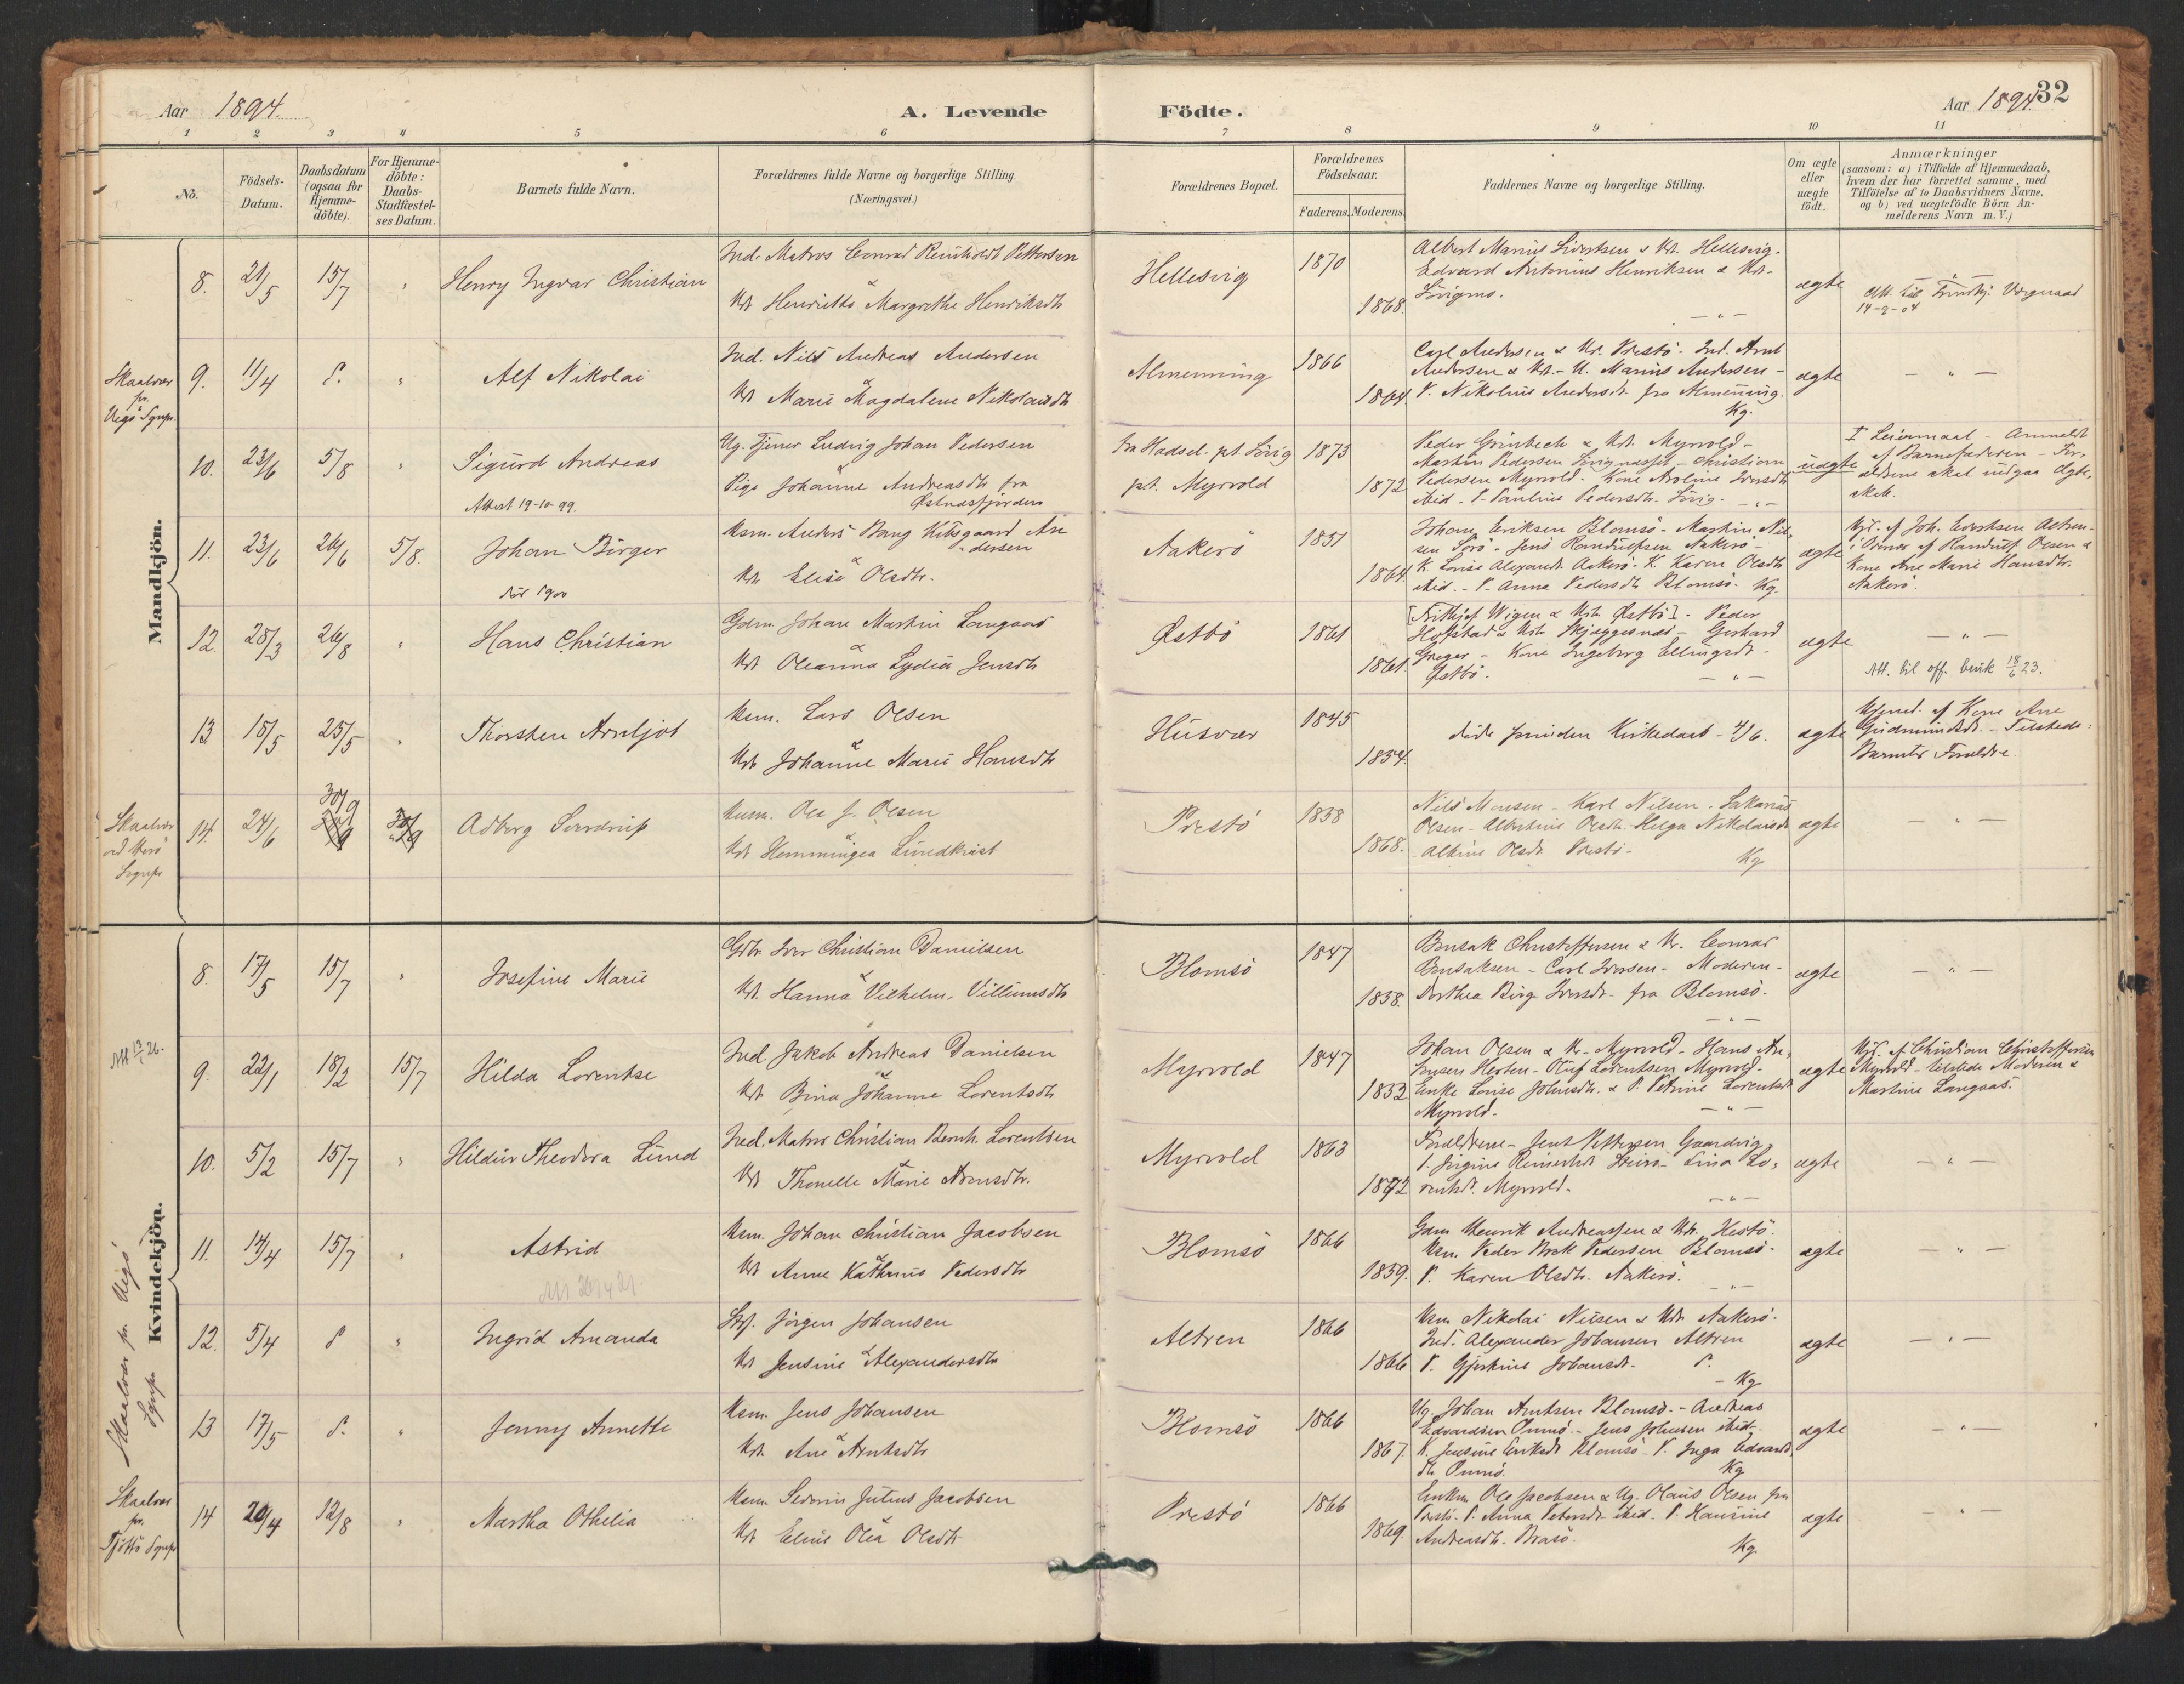 Aar 1894.
A. Levende
Födte.
Aar 1894
32
1 2 3 4 5 6 7 8 9 10 11
No.
Födsels-Datum.
Daabsdatum (ogsaa for Hjemme-döbte).
For Hjemme-döbte: Daabs-Stadfæstel-ses Datum.
Barnets fulde Navn.
Forældrenes fulde Navne og borgerlige Stilling.
(Næringsvei.)
Forældrenes Bopæl.
Forældrenes Födselsaar.
Faderens. Moderens.
Faddernes Navne og borgerlige Stilling.
Om ægte eller uægte födt.
Anmærkninger
(saasom: a) i Tilfælde af Hjemmedaab,
hvem der har forrettet samme, med
Tilföielse af to Daabsvidners Navne,
og b) ved uægtefödte Börn An-
melderens Navn m. V.)
Mandkjön.
8. 21/5 15/7 " Henry Ingvar Christian
Ind. Matros Conrad Reinholdt Pettersen
&
Kst Henriette Margrethe Henriksdtr
Hellesvig 1870 1868.
Albert Marius Sivertsen & Kst. Hellesvig.
Edvard Antonius Henriksen & Kst.
ægte
14-9-04
Skaalvær
pr.
Vegö Sgnpr.
9. 11/4 S. " Alf Nikolai
Ind. Nils Andreas Andersen
&
Kst Marie Magdalene Nikolaisdtr
Almenning 1866 1864
Carl Andersen & Kr. Prestö. Ind. Arnt
Andersen & Kst. U. Marius Andersen -
P. Nikoline Andersdt. fra Almenning.
Kg.
ægte - " -
10. 23/6 5/8 " Sigurd Andreas
Attest 19-10-99.
Ug. Tjener Ludvig Johan Pedersen
&
Pige Johanne Andreasdtr fra
Østnæsfjorden
fra Hadsel. pt. Sövig
pt. Myrvold
1873 1872
Peder Grönbech & Kst. Myrvold -
Martin Pedersen - Christian
Pedersen Myrvold. Kone
ibid - P. Pauline Pedersdtr. Sövig.
uægte
I Leiermaal - Anmeldt
af Barnefaderen - For-
ældrene skal indgaa Ægte-
skab.
11. 23/6 24/6 5/8. Johan Birger
död 1900
Hsm. Anders Bang Kibsgaard An
dersen
&
Kst Elise Olsdtr.
Aakerö 1851 1864.
Johan Eriksen Blomsö - Martin Nil-
sen - Jens Aakerö -
K. Lovise Alexandt. Aakerö. K. Karen Olsdtr
ibid. - P. Anna Pedersdtr Blomsö. Kg.
ægte
Hjd. af Joh. Evertsen Altren -
i Overvær af Olsen &
Kone Ane Marie Hansdtr.
Aakerö.
12. 28/3 26/8 " Hans Christian
Gdm. Johan Martin Langaas
&
Kst Oleanna Lydia Jensdtr
Østbö 1861 1861.
[Fridtjof Wigen & Kst. Østbö]. Peder
Hofstad & Kst. Skjæggesnæs - Gerhard
Greger - Kone Ingeborg Ellingsdt.
Østbö.
ægte - " -
Att. til off. bruk 18/6 23.
13. 18/5 25/5 " Thorsten Arnljot
Hsm. Lars Olsen
&
Kst Johanne Marie Hansdtr
Husvær 1845 1854.
döde förinden Kirkedaab - 4/6.
ægte
Hjemd. af Kone Ane
Gudmundsdt. - Tilstede:
Barnets Forældre.
Skaalvær
ved Herö
Sognepr
14. 24/6 30/9 Adberg Sverdrup
Hsm. Ole J. Olsen
&
Kst Hemmingea Lundkvist
Prestö 1838 1868.
Nils Monsen - Karl Nilsen. Sakarias
Olsen - Albertine Olsdtr. Helga Nikolaisdt
Albine Olsdt Prestö -
Kg
ægte - " -
Kvindekjön.
8. 17/5 15/7 " Josefine Marie
Gdbr. Iver Christian Danielsen
&
Kst. Hanna Vilhelm. Villumsdtr
Blomsö 1847 1838.
Bensak Christoffersen & K. Conrad
Bensaksen - Carl Iversen - Moderen -
Dorthea Birg. Iversdt. fra Blomsö.
- " -
ægte - " -
Att 13/1 26.
9. 22/1 18/2 15/7 Hilda Lorentse
Ind. Jakob Andreas Danielsen
&
Kst Bina Johanne Lorentsdtr
Myrvold 1847 1852
Johan Olsen & K. Myrvold - Hans An-
Oluf Lorentsen Myrvold -
Enke Lovise Johnsdtr. & P. Petrine Lorentsdt
Myrvold. - " -
ægte
Hjd. af Christian Christoffersen
Myrvold - tilstede Moderen &
Martine Langaas.
10. 5/2 15/7 " Hildur Theodora Lund
Ind. Matros Christian Bernh. Lorentsen
&
Kst Thonelle Marie Arensdtr.
Myrvold 1863 1872
Forældrene - Jens Pettersen
Lina Lo-
rentsdt. Myrvold.
- " -
ægte - " -
11. 14/4 15/7 " Astrid
Hsm. Johan Christian Jacobsen
&
Kst Anne Kathrine Pedersdtr
Blomsö 1866 1859.
Gdm Henrik Andreassen & Kst. Hestö.
Hsm. Peder Pedersen Blomsö.
P. Karen Olsdtr. Aakerö.
- " -
ægte - " -
Skaalvær pr. Vegö
Sgnpr
12. 5/4 S " Ingrid Amanda
Strf. Jörgen Johansen
&
Kst Jensine Alexandersdtr
Altren 1866 1866
Hsm Nikolai Nilsen & Kst. Aakerö.
Ind. Alexander Johansen Altren
P. Gjertine Johansdt. S.
- Kg
ægte - " -
13 17/5 S. " Jenny Annette
Hsm. Jens Johansen
&
Kst. Ane Arntsdtr
Blomsö 1866 1867.
Ug. Johan Arntsen Blomsö. - Andreas
Edvardsen - Jens Johnsen ibid.
K. Jensine Eriksdt Blomsö - P. Inga Edvards
dtr
Kg
ægte - " -
Skaalvær
pr.
Tjöttö Sgnpr
14 20/4 12/8 " Martha Othelia
Hsm Severin Julius Jacobsen
&
Kst Eline Olea Olsdtr
Prestö 1866 1869.
Enkm Ole Jacobsen & Ug. Olaus Olsen fra
Prestö. P. Anna Petersdt. ibid. P. Hansine
Andreasdtr. Brasö.
Kg
ægte - " -